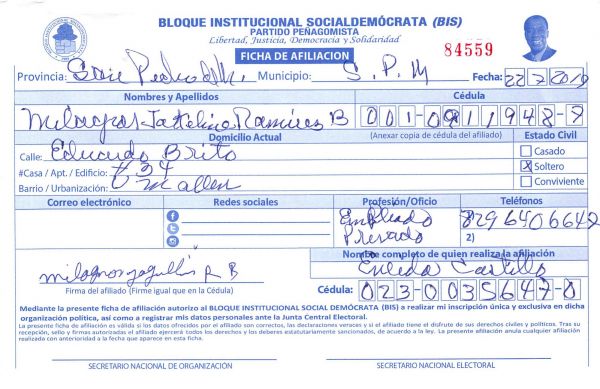 BLOQUE INSTITUCIONAL SOCIALDEMÓCRATA (BIS)
PARTIDO PEÑAGOMISTA
Libertad, Justicia, Democracia y Solidaridad
FICHA DE AFILIACION
84559
Provincia: San Pedro de M. Municipio: S. P. M Fecha: 22-2-2019
Nombres y Apellidos Cédula
Milagros Ramirez B 001-0911948-7
Domicilio Actual (Anexar copia de cédula del afiliado) Estado Civil
Calle: Eduardo Brito Casado
#Casa / Apt. / Edificio: # 34 X Soltero
Barrio / Urbanización: Mallen Conviviente
Correo electrónico Redes sociales Profesión/Oficio Teléfonos
Empleado 829 6406642
Privado 2)
Nombre completo de quien realiza la afiliación
Eneida Castillo
Firma del afiliado (Firme igual que en la Cédula) Cédula: 023-0035647-0
Mediante la presente ficha de afiliación autorizo al BLOQUE INSTITUCIONAL SOCIAL DEMÓCRATA (BIS) a realizar mi inscripción única y exclusiva en dicha
organización política, así como a registrar mis datos personales ante la Junta Central Electoral.
La presente ficha de afiliación es válida si los datos ofrecidos por el afiliado son correctos, las declaraciones veraces y si el afiliado tiene el disfrute de sus derechos civiles y políticos. Tras su
recepción, sello y firmas autorizadas el afiliado ejercerá todos los derechos y los deberes estatutariamente sancionados, de acuerdo a la ley. La presente afiliación anula cualquier afiliación
realizada con anterioridad a la fecha que aparece en esta ficha.
SECRETARIO NACIONAL DE ORGANIZACIÓN SECRETARIO NACIONAL ELECTORAL